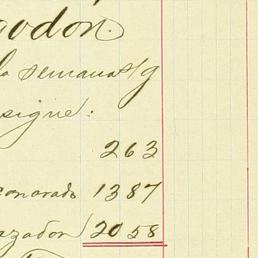 godon.
la semana s/g
signe:
263
onorado 1387
azador 2058